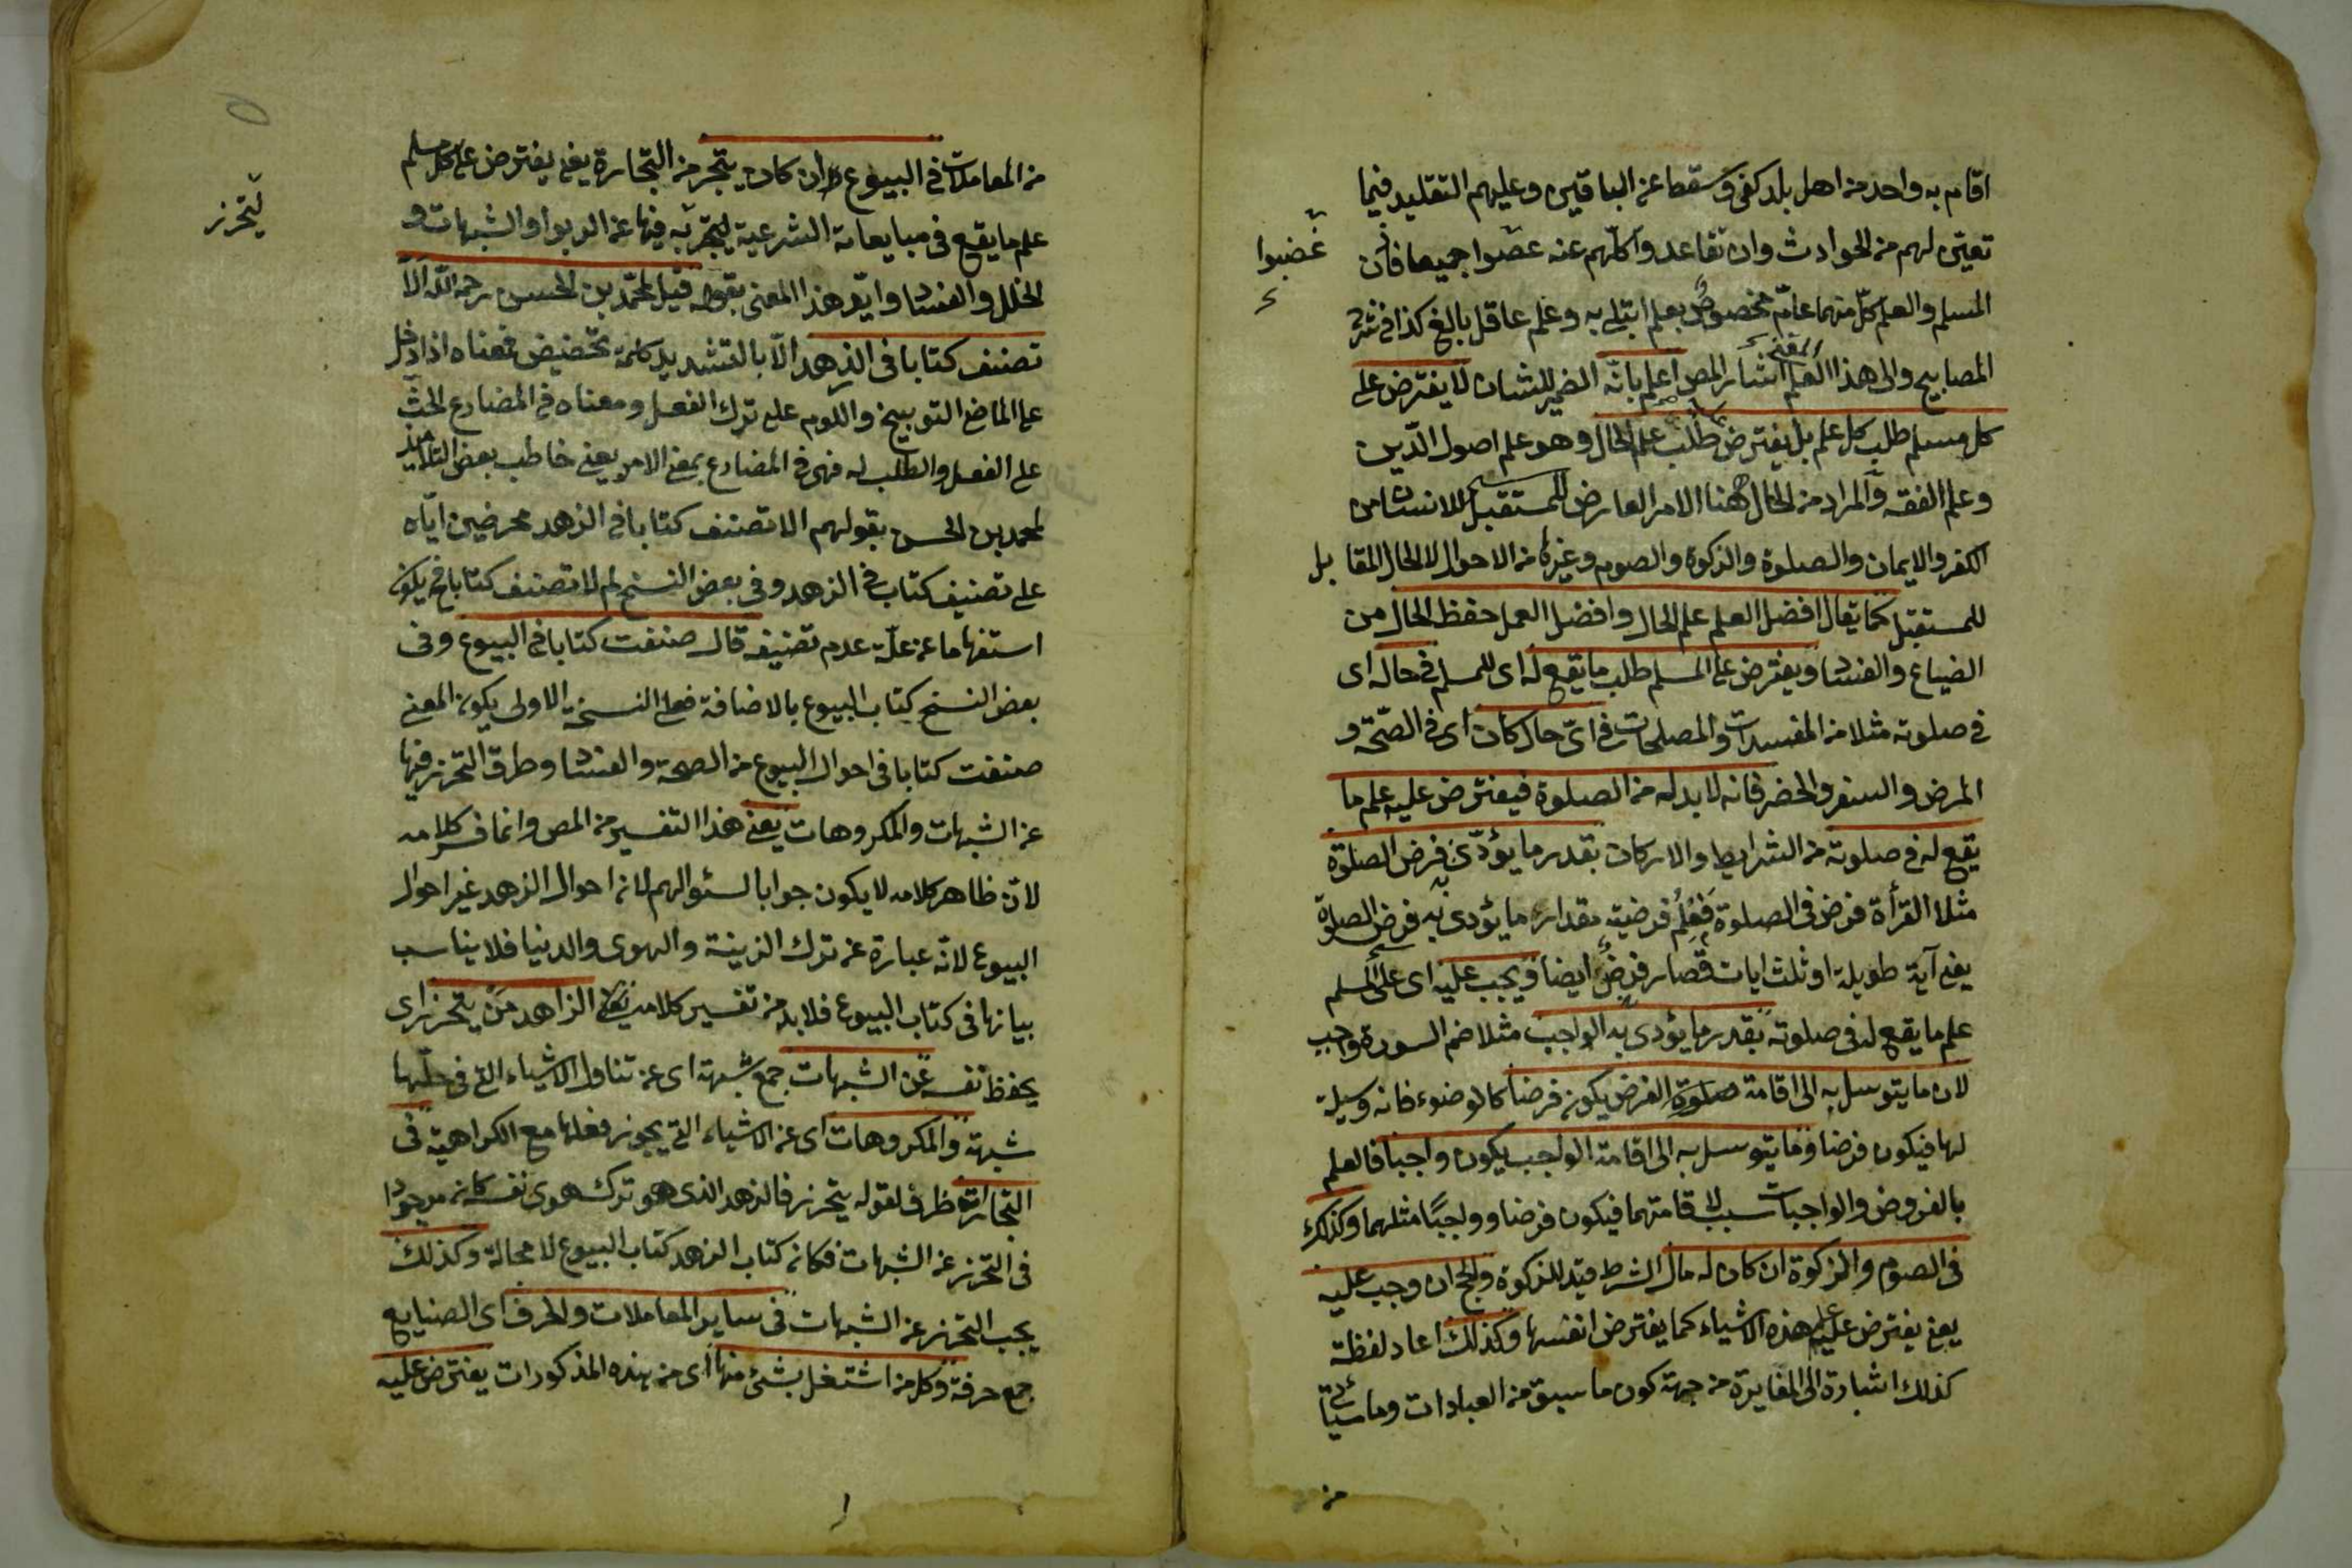 اقام به واحد من اهل بلد كفى وسقط عن الباقين وعليهم التقليد فيما
تعيّن لهم من الحوادث وان تقاعدوا كلّهم عنه عصوا جميعا فان
غضبوا
المسلم والعلم كلّ منهما عامّ مخصوص بعلم ابتلى به وعلم عاقل بالغ كذا فى شرح
المصابيح والى هذا المعنى اشار المص اعلم بانّه الضمير للشان لا يفترض على
كل مسلم طلب كل علم بل يفترض طلب علم الحال وهو علم اصول الدّين
وعلم الفقه والمراد من الحال ههنا الامر العارض للانسان من
الكفر والايمان والصلوة والزكوة والصوم وغيرها من الاحوال لا الحال المقابل
للمستقبل كما يقال افضل العلم علم الحال وافضل العمل حفظ الحال من
الضياع والفساد ويفترض على المسلم طلب ما يقع له اى للمسلم فى حاله اى
فى صلوته مثلا من المفسدات والمصلحات فى اىّ حال كان اى فى الصّحّة و
المرض والسفر والحضر فانه لا بد له من الصلوة فيفترض عليه علم ما
يقع له فى صلوته من الشرايط والاركان بقدر ما يؤدّى به فرض الصلوة
مثلا القرأة فرض فى الصلوة فعلم فرضية مقدار ما يؤدى به فرض الصلوة
يعنى آية طويلة او ثلث ايات قصار فرض ايضا ويجب عليه اى على المسلم
علم ما يقع له فى صلوته بقدر ما يؤدى به الواجب مثلا ضم السورة واجب
لان ما يتوسل به الى اقامة صلوة الفرض يكون فرضا كالوضوء فانه وسيلة
لها فيكون فرضا وما يتوسل به الى اقامة الواجب يكون واجبا فالعلم
بالفروض والواجبات سبب لاقامتهما فيكون فرضا وواجبًا مثلهما وكذلك
فى الصوم والزكوة ان كان له مال الشرط قيد للزكوة والحج ان وجب عليه
يعنى يفترض عليه علم هذه الاشياء كما يفترض انفسها وكذلك اعاد لفظة
كذلك اشارة الى المغايرة من جهة كون ما سبق من العبادات وما سيأتى
من
من المعاملات فى البيوع ان كان يتجر من التجارة يعنى يفترض على كل مسلم
علم ما يقع فى مبايعاته الشرعية ليتجر به فيها عن الربوا والشبهات و
ليتحرز
الخلل والفساد وايّد هذا المعنى بقوله قيل لمحمّد بن الحسن رحمه اللّه الّا
تصنف كتابا فى الزهد الّا بالتشديد كلمة تحضيض معناه اذا دخل
على الماضى التوبيخ واللوم على ترك الفعل ومعناه فى المضارع الحثّ
على الفعل والطلب له فهى فى المضارع بمعنى الامر يعنى خاطب بعض التلاميذ
لمحمد بن الحسن بقولهم الا تصنف كتابا فى الزهد محرضين ايّاه
على تصنيف كتاب فى الزهد وفى بعض النسخ لم لا تصنف كتابا فح يكون
استفهاما عن علّة عدم تصنيفه قال صنفت كتابا فى البيوع وفى
بعض النسخ كتاب البيوع بالاضافة فعلى النسخة الاولى يكون المعنى
صنفت كتابا فى احوال البيوع من الصحة والفساد وطرق التحرز فيها
عن الشبهات والمكروهات يعنى هذا التفسير من المص وانما فسر كلامه
لانّ ظاهر كلامه لا يكون جوابا لسئوالهم لان احوال الزهد غير احوال
البيوع لانّه عبارة عن ترك الزينة والهوى والدنيا فلا يناسب
بيانها فى كتاب البيوع فلا بد من تفسير كلامه الزاهد من يتحرز اى
يحفظ نفسه عن الشبهات جمع شبهة اى عن تناول الاشياء التى فى حلّها
شبهة والمكروهات اى عن الاشياء التى يجوز فعلها مع الكراهية فى
التجارة ظرف لقوله يتحرز فالزهد الذى هو ترك هوى نفسه كان موجودا
فى التحرز عن الشبهات فكان كتاب الزهد كتاب البيوع لا محالة وكذلك
يجب التحرز عن الشبهات فى ساير المعاملات والحرف اى الصنايع
جمع حرفة وكل من اشتغل بشئ منها اى من هذه المذكورات يفترض عليه